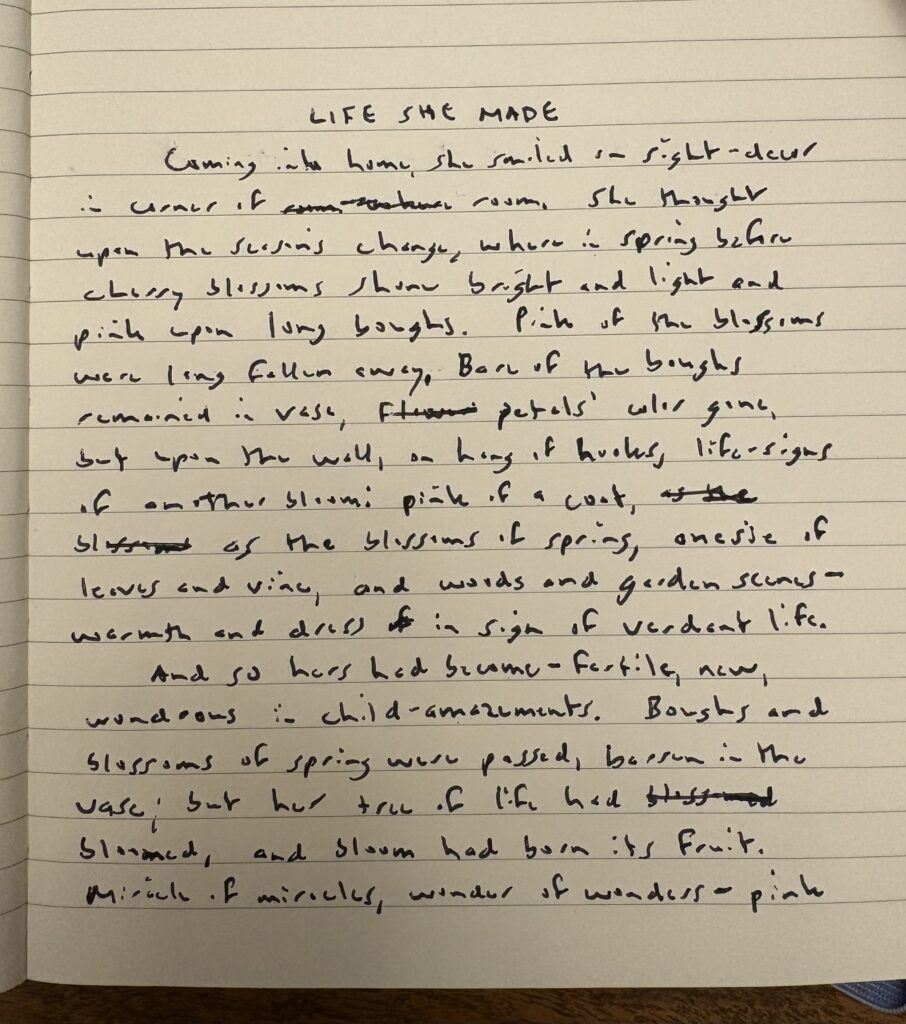 LIFE SHE MADE
Coming into home, she smiled on sight-decor
in corner of room. She thought
upon the seasons change, where in spring before
cherry blossoms shone bright and light and
pink upon long boughs. Pink of the blossoms
were long fallen away. Bare of the boughs
remained in vase, petals' color gone,
but upon the wall, on hang of hooks, life-signs
of another bloom: pink of a coat, as the
blossoms as the blossoms of spring, onesie of
leaves and vine, and words and garden scenes-
warmth and dress in sign of verdant life.
And so hers had become-fertile, new,
wondrous in child-amazements. Boughs and
blossoms of spring were passed, barren in the
vase; but her tree of life had blossomed
bloomed, and bloom had born its fruit.
Miracle of miracles, wonder of wonders- pink